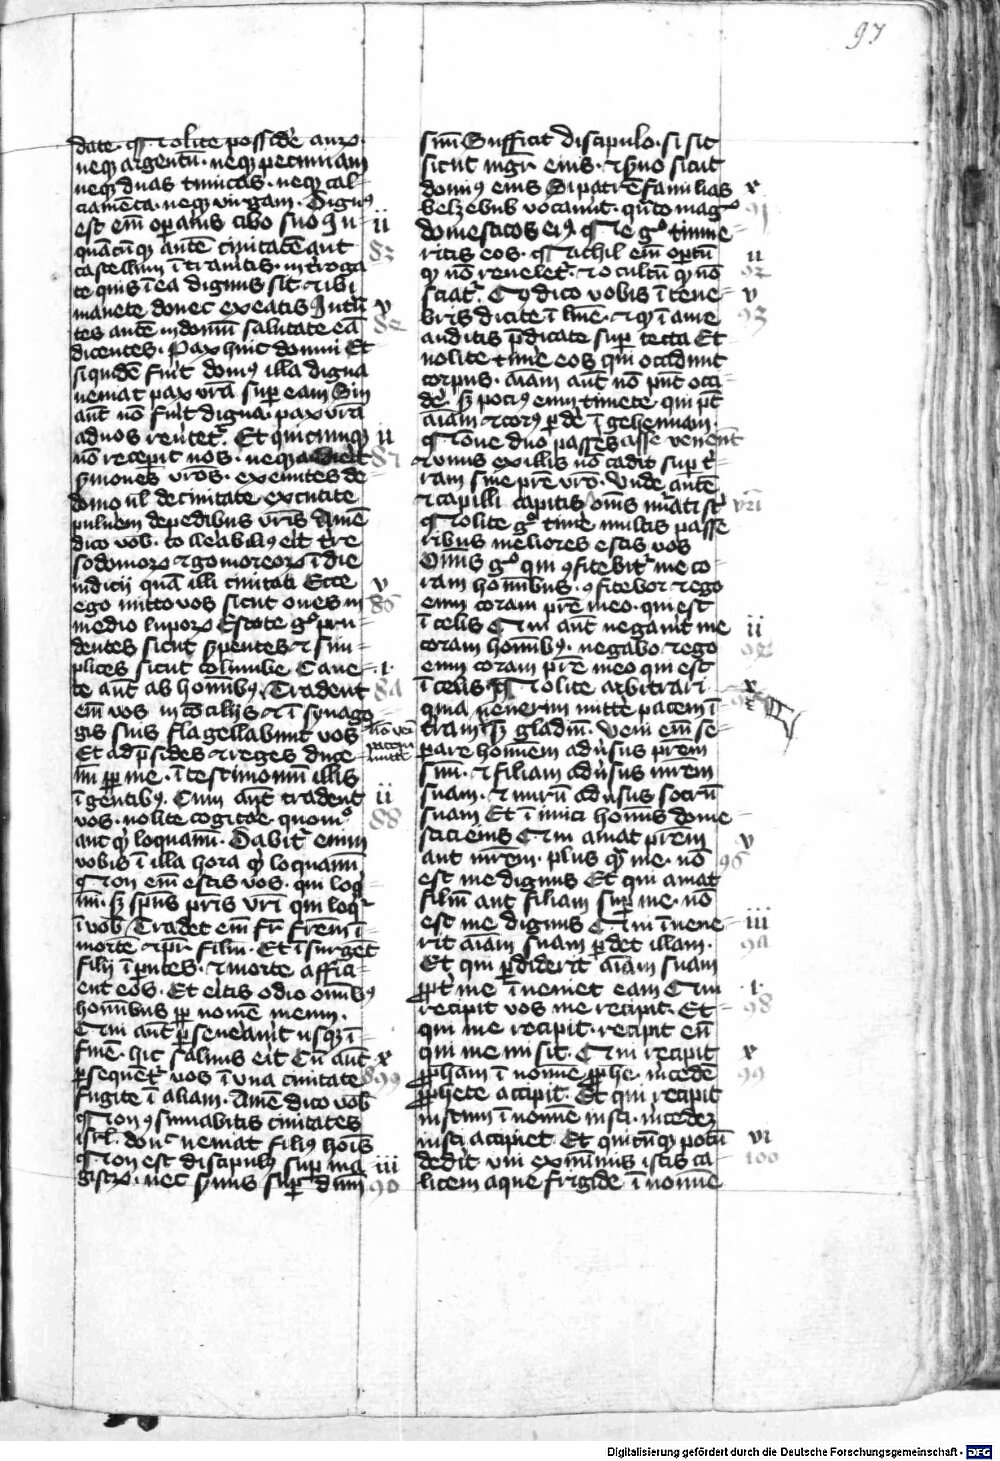 97
date. Nolite possidere auru
neq argentu. neq pecuniam
neq duas tunicas. neq cal-
ciamenta. neq virgam. Dignus
est em oparius cibo suo In ii
quacuq aute civitate aut 83
castellum itraveritis. interroga
te quis i ea dignus sit. et ibi
manete donec exeatis Intra v
tes aute in domu salutate ea
dicentes. Pax huic domui Et
siquide fuit domus illa digna
veniat pax vra sup eam Sin
aut no fuit digna. pax vra
ad vos revertet. Et quicunq ii
no receperit vos. neq audierit
smones vros. exeuntes de
domo vl de civitate excutite
pulvem de pedibus vris Ame
dico vob. tollerabilius erit tre
sodomor et gomoreor i die
iudicii qua illi civitati Ecce v
ego mitto vos sicut oves in 86
medio lupor Estote go pru
dentes sicut spentes et sim
plices sicut columbe Cave- i
te aut ab hominibus. Tradent
em vos in conciliis et i synago
gis suis flagellabunt vos
Et ad psides et reges duce-
mi pp me. i testimonium illis
i gentibus. Cum aut tradent ii
vos. nolite cogitare quomo 88
aut qd loquami. Dabit enim
vobis i illa hora qd loquami
Non em estis vos. qui loq
mi. sz spus pris vri qui loqr
i vob Tradet em fr frem i
morte et pr filiu. Et isurget
filii i parentes. et morte affici
ent eos. Et eritis odio omibus
hominibus pp nomen meum.
Qui aut pseveravit usq i
fine. hic salvus erit Cu aut x
psequent vos i una civitate
fugite i aliam. Amen dico vob
Non consumabitis civitates
isrl. donec veniat filius hois
Non est discipulus sup ma iii
gistru. nec servus sup dnm 90
no veni
pacem
mitte
suu Sufficit discipulo. si sit
sicut magr eius. et servo sicut
dominus eius Si patre familias x
belzebub vocaverunt. quanto mag 91
domesticos eius Ne go timue-
ritis eos. Nichil em optu ii
qd no revelet. et ocultu qd no 92
sciat. Qd dico vobis i tene- v
bris dicite i lumine. et qd i aure 93
auditis pdicate sup tecta Et
nolite timere eos qui occidunt
corpus. aiam aut no pnt occi-
de. sz pocius eum timete qui pt
aiam et corpus pde i gehennam.
None duo passes asse veneunt
et unus ex illis no cadit sup t
ram sine pre vro. Unde aute
et capilli capitis oms nuati st vri
Nolite go time multis passe
ribus meliores estis vos
Omis go qui confitebit me co-
ram hominibus. confitebor et ego
eum coram pre meo. qui est
i celis Qui aut negavit me ii
coram hominibus. negabo et ego
eum coram pre meo qui est
i celis. Nolite arbitrari x
quia venerim mitte pacem i
tram sz gladium. Veni em se-
parare hominem adversus prem
suu. et filiam adversus mrem
suam. et nurum adversus socru
suam Et i imici hominis dome-
stici eius Qui amat prem v
aut mrem. plus qm me. no 96
est me dignus Et qui amat
filiu aut filiam sup me. no
est me dignus Qui invene- iii
rit aiam suam pdet illam.
Et qui pdiderit aiam suam
ppt me i veniet eam Qui i
recipit vos me recipit. Et 98
qui me recipit. recipit eu
qui me misit. Qui recipit x
ppham i nomine pphe. mcede 99
pphete accipit. Et qui recipit
iustum i nomine iusti. mcedez
iusti accipiet Et quicuq potu vi
dederit uni ex minimis istis ca- 100
licem aque frigide i nomine
Digitalisierung gefördert durch die Deutsche Forschungsgemeinschaft - DFG